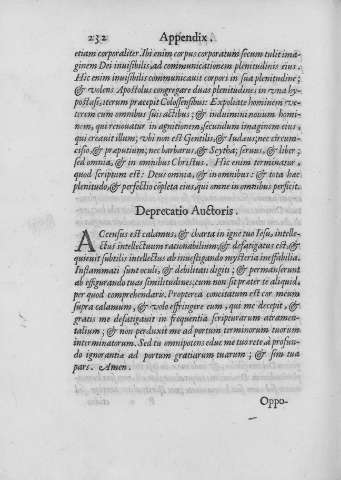 232 Appendix.
etiam corporaliter. Ibi enim corpus corporatum secum tulit ima-
ginem Dei inuisibilis, ad communicationem plenitudinis eius.
Hic enim inuisibilis communicauit corpori in sua plenitudine;
& volens Apostolus congregare duas plenitudines in vna hypo-
stasi, iterum præcepit Colossensibus: Expoliate hominem ve-
terem cum omnibus suis actibus; & induimini nouum homi-
nem, qui renouatur in agnitionem, secundum imaginem eius,
qui creauit illum; vbi non est Gentilis, & Iudeus; nec circum-
cisio, & præputium; nec barbarus, & Scytha; seruus, & liber;
sed omnia, & in omnibus Christus. Hic enim terminatur,
quod scriptum est: Deus omnia, & in omnibus: & tota hæc
plenitudo, & perfectio cõpleta eius, qui omne in omnibus perficit.
Deprecatio Auctoris.
ACcensus est calamus, & charta in igne tuo Iesu, intelle-
ctus intellectuum rationabilium, & defatigatus est, &
quieuit subtilis intellectus ab inuestigando mysteria ineffabilia.
Inflammati sunt oculi, & debilitati digiti; & permanserunt
ab effigurando tuas similitudines, cum non sit præter te aliquid,
per quod comprehendaris. Propterea concitatum est cor meum
supra calamum, & volo effringere eum, qui me decepit, &
gratis me defatigauit in frequentia scripturarum atramen-
talium; & non perduxit me ad portum terminorum tuorum
interminatorum. Sed tu omnipotens educ me tuo rete à profun-
do ignorantiæ ad portum gratiarum tuarum; & sim tua
pars. Amen.
Oppo-